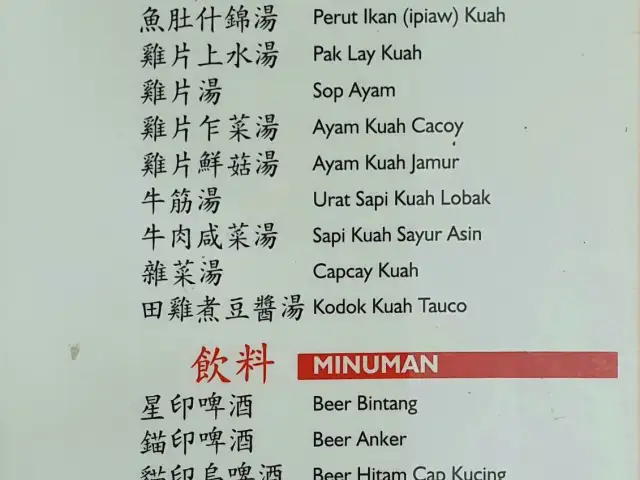 魚肚什錦湯 Perut Ikan (ipiaw) Kuah
雞片上水湯 Pak Lay Kuah
雞片湯 Sop Ayam
雞片乍菜湯 Ayam Kuah Cacoy
雞片鮮菇湯 Ayam Kuah Jamur
牛筋湯 Urat Sapi Kuah Lobak
牛肉咸菜湯 Sapi Kuah Sayur Asin
雜菜湯 Capcay Kuah
田雞煮豆醬湯 Kodok Kuah Tauco
飲料 MINUMAN
星印啤酒 Beer Bintang
錨印啤酒 Beer Anker
貓印烏啤酒 Beer Hitam Cap Kucing